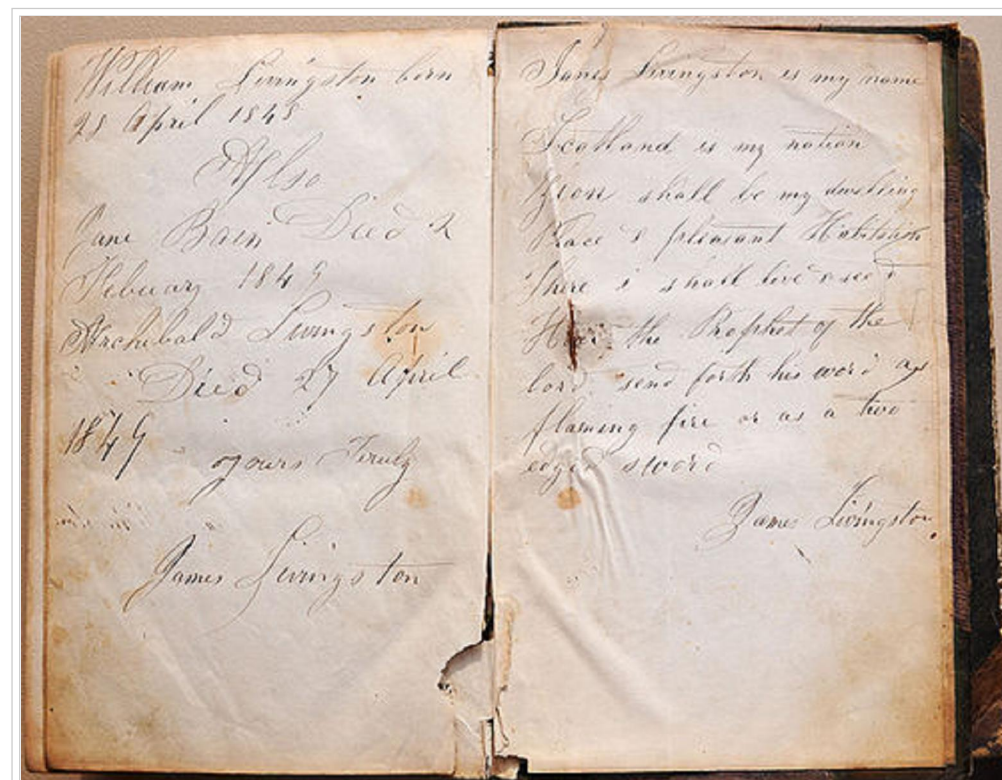 William Livingston born
28 April 1848
Also
Jane Bain Died 2
Febuary 1849
Archibald Livingston
Died 27 April
1849
yours Truly
James Livingston
James Livingston is my name
Scotland is my nation
Zion shall be my dwelling
Place & pleasant Habitation
There i shall live and
Hear the Prophet of the
lord send forth his word as
flaming fire or as a two
edged sword
James Livingston